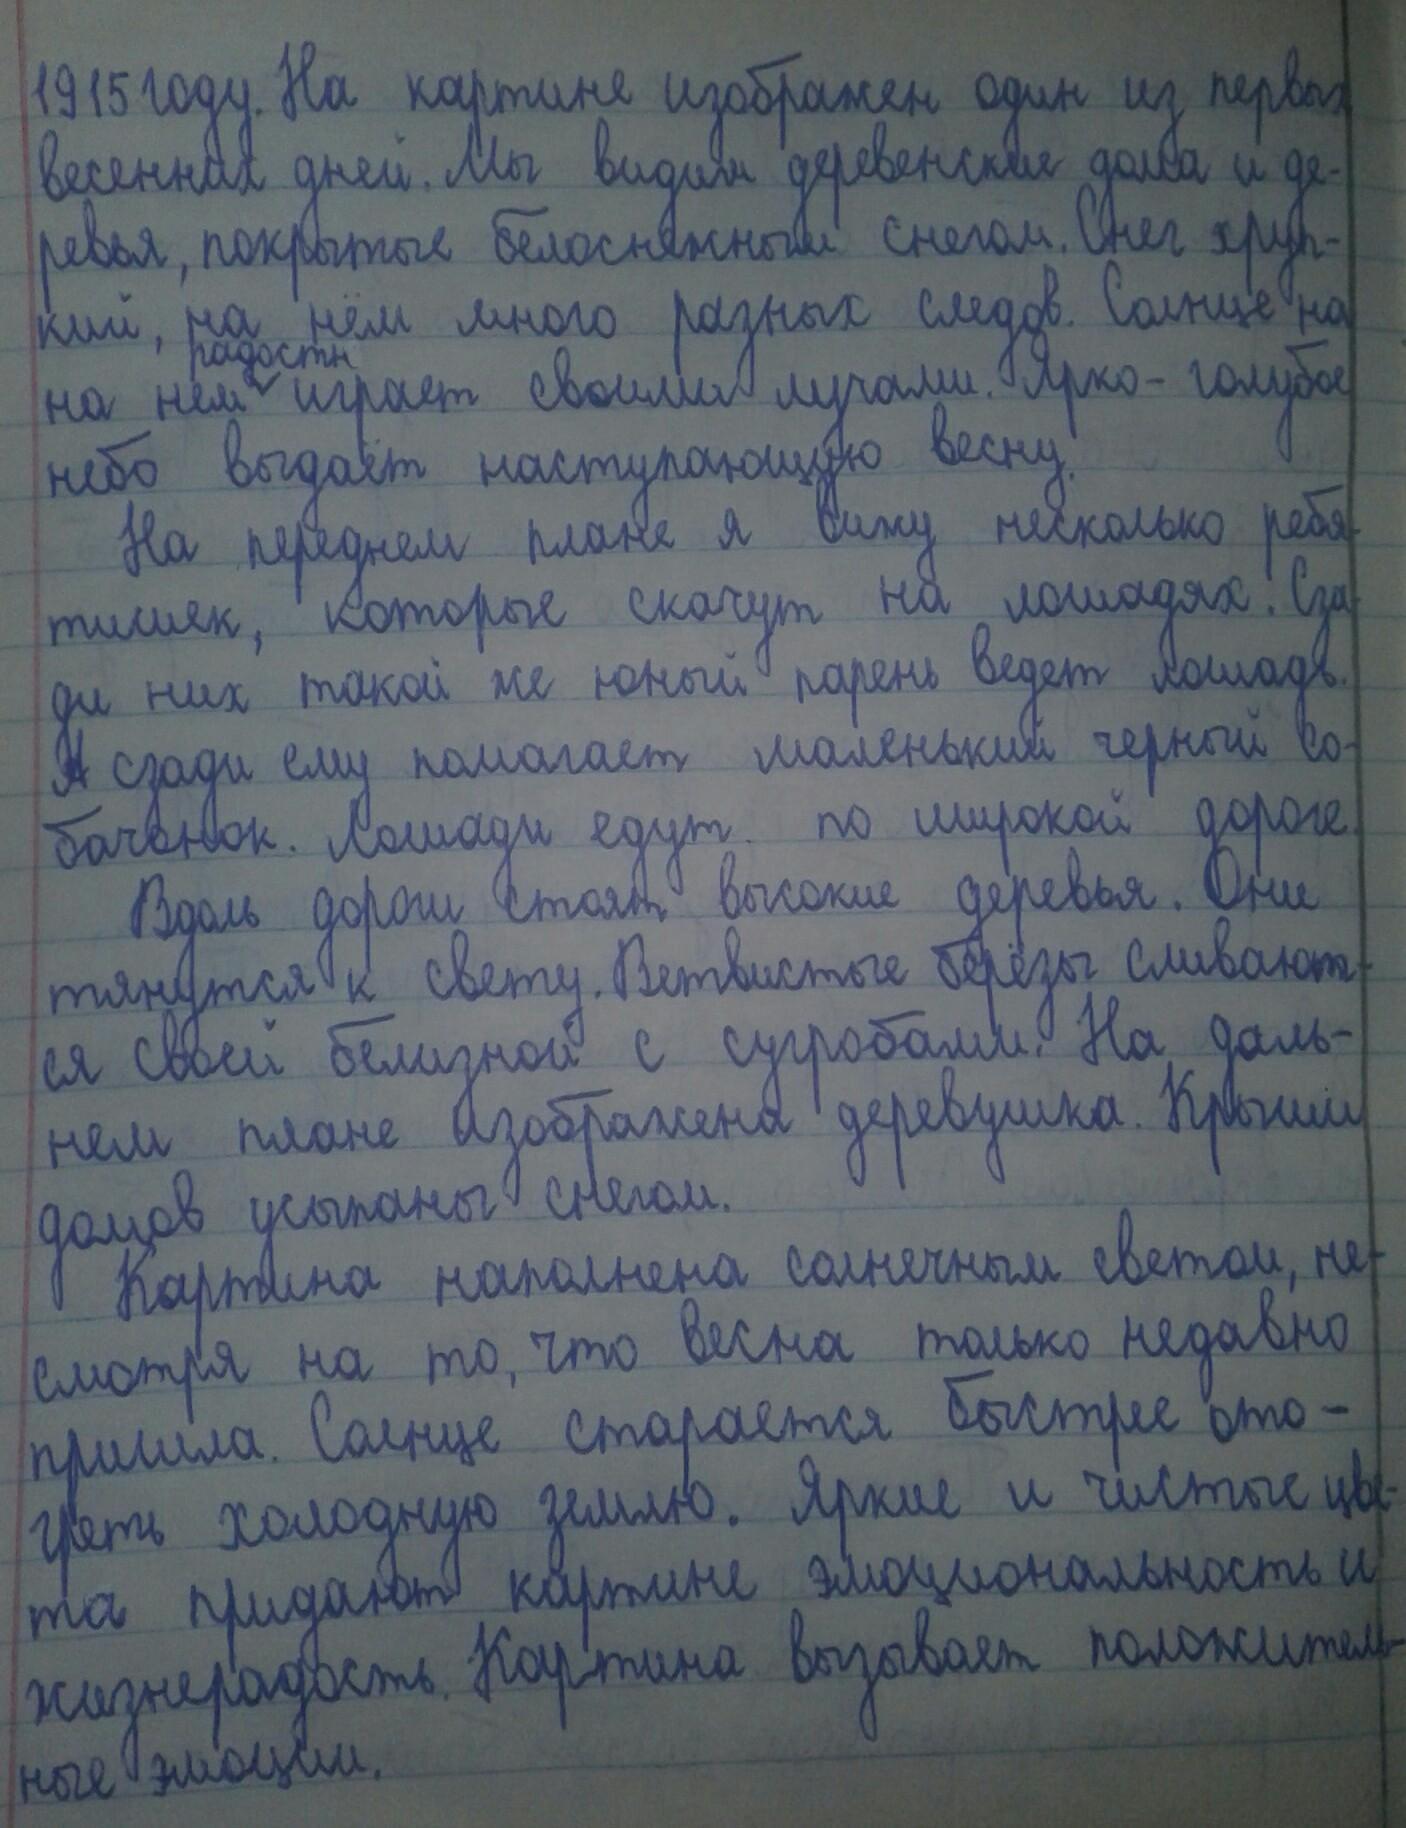 1915 году. На картине изображен один из первых
весенних дней. Мы видим деревенские дома и де-
ревья, покрытые белоснежным снегом. Снег хруп-
кий, на нём много разных следов. Солнце на
радостн
на нём играет своими лучами. Ярко-голубое
небо выдаёт наступающую весну.
На переднем плане я вижу несколько ребя-
тишек, которые скачут на лошадях. Сза-
ди них такой же юный парень ведет лошадь.
А сзади ему помогает маленький черный со-
бачонок. Лошади едут по широкой дороге.
Вдоль дороги стоят высокие деревья. Они
тянутся к свету. Ветвистые берёзы сливают-
ся своей белизной с сугробами. На даль-
нем плане изображена деревушка. Крыши
домов усыпаны снегом.
Картина наполнена солнечным светом, не-
смотря на то, что весна только недавно
пришла. Солнце старается быстрее ото-
греть холодную землю. Яркие и чистые цве-
та придают картине эмоциональность и
жизнерадость. Картина вызывает положитель-
ные эмоции.